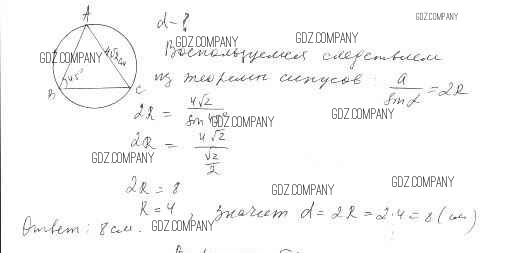 A
d - ?
GDZ.COMPANY
4√2 см
GDZ.COMPANY
GDZ.COMPANY
GDZ.COMPANY
Воспользуемся следствием
45°
B
C
из теоремы синусов: a/sin α = 2R
GDZ.COMPANY
2R = 4√2/sin 45°
GDZ.COMPANY
GDZ.COMPANY
2R = 4√2/(√2/2)
GDZ.COMPANY
2R = 8
GDZ.COMPANY
GDZ.COMPANY
R = 4, значит d = 2R = 2·4 = 8 (см)
Ответ: 8 см.
GDZ.COMPANY